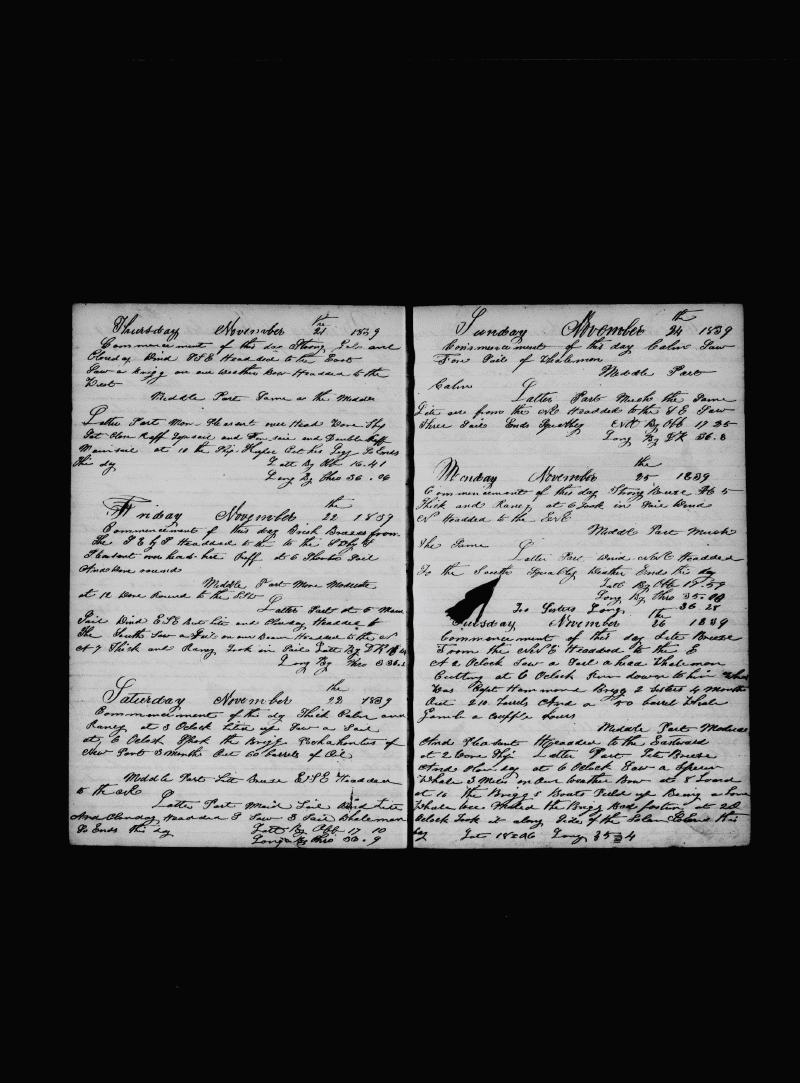 Thursday November 21 1839
Commencement of this day Strong Gale and
Cloudy Wind ESE Headded to the East
Saw a brigg on our weather Bow Headded to the
West
Middle Part Same as the Middle
Latter Part More Pleasant over Head
Set Close Reff Topsail and Foresail and Double Reff
Mainsail at 10 the Ship Keeper Cut his Legg So Ends
this day Latt By Obb 16.41
Long By Chro 36.06
Friday November 22 1839
Commencement of this day Brisk Breeze from
the Headded to the to the
Pleasant over head at 6 Shorten Sail
And wore round
Middle Part More Moderate
at 12 wore Round to the
Latter Part at 6 Made
Sail Wind ESE But Lite and Cloudy Headded to
the South Saw a Sail on our Beam Headded to the N
At 9 Thick and Raney Took in Sail Latt By DR
Long By Chro 36
Saturday November 22 1839
Commencement of this day Thick Calm and
Raney at 3 Oclock Lited up Saw a Sail
at 6 Oclock Spoke the Brigg Pochahontus of
New Port 3 Months Out 60 barrels of Oil
Middle Part Lite Breeze ESE Headded
to the NE
Latter Part Maid Sail Wind Lite
And Cloudy Headded S Saw 3 Sail Whalemen
So Ends this day Latt By Obb 17 10
Long By Chro 36.9
Sunday November 24th 1839
Commencement of this day Calm Saw
Four Sails of Whalemen
Middle Part
Calm
Latter Part Much the Same
Lite airs from the NE Headded to the SE Saw
Three Sails Ends Squally Latt By Obb 17 25
Long By DR 36.8
Monday November 25the 1839
Commencement of this day Strong Breeze At 5
Thick and Raney at 6 Took in Sail Wind
N Headded to the
Middle Part Much
the Same
Latter Part Wind NNE Headded
To the South Squally Weather Ends the day
Latt By Obb 17.59
Long By Chro 35.10
Two Sisters Long 36 28
Tuesday November 26the 1839
Commencement of this day Lite Breeze
From the NNE Headded to the E
At 2 Oclock Saw a Sail ahead Whaleman
Cutting at 6 Oclock Run down to him
Was Capt Hammond Brigg 2 Sisters 4 Months
Out 210 barrels And a 50 barrel Whale
Gamb a Coupple hours
Middle Part Moderate
And Pleasant Headded to the Eastward
at 2 Wore Ship Latter Part Lite Breeze
And Hazy at 6 Oclock Saw a Sperm
Whale 3 Miles on Our weather Bow at 8 Lowerd
at 10 the Briggs Boats Puld up Being a Lone
Whale we the Brigg Boat fasten at 2
Oclock Took it along Side of the Ends this
day Lat 18 06 Long 35 34